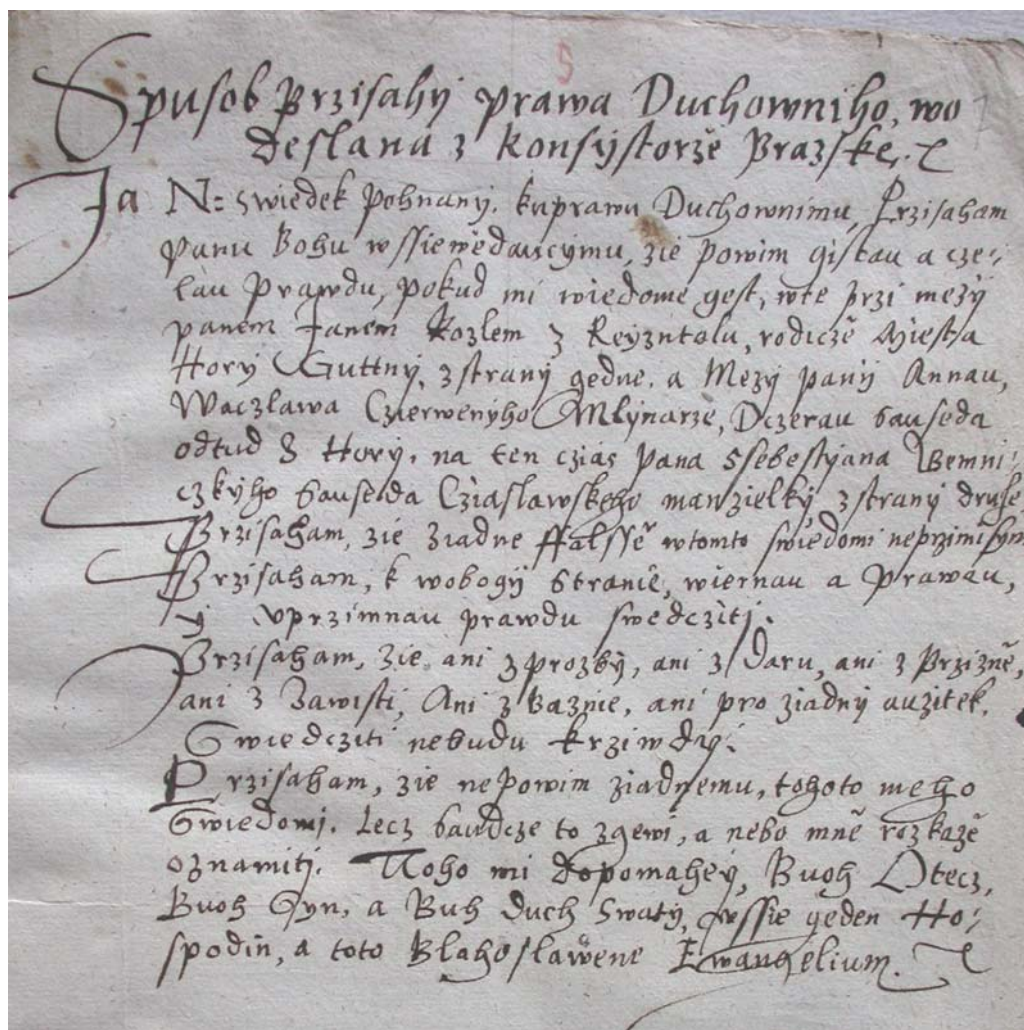 5
Spusob Przisahy prawa Duchowniho, wo
deslana z Konsystorže Pražske.
Ja N: swiedek Pohnany. kuprawu Duchownimu, Przisaham
Panu Bohu wssiewědaucýmu, zie powim gistau a cze:
lau Prawdu, pokud mi wiedome gest, wte przi mezy
panem Janem Kozlem z Reyzntalu, rodicžě Miesta
Hory Guttny, z strany gedne. a Mezy panij Annau,
Waczlawa Czerwenyho Mlynarze, Dczerau Sauseda
odtud z Hory. na ten cžias pana Ssebestyana
czkyho Sauseda Cžiaslawskeho manzielky, z strany druhe
Przisaham, zie žiadne ffalssě wtomto swiedomi neprzimisym
Przisaham, k wobogy Straně, wiernau a Prawau,
y vprzimnau prawdu swedcziti.
Przisaham, Zie ani z prozby, ani z Daru, ani z Przizně,
ani z Zawisti, Ani z Baznie, ani pro ziadny auzitek.
Swiedcziti nebudu krziwdy.
Przisaham, zie nepowim ziadnemu, tohoto meho
Swiedomj. Lecz Saudcze to zgewi, a nebo mně rozkazě
oznamiti. Toho mi dopomahey, Buoh Otecz,
Buoh Syn, a Buh Duch Swaty, wssie geden Ho:
spodin, a toto Blahoslawene Ewangelium.